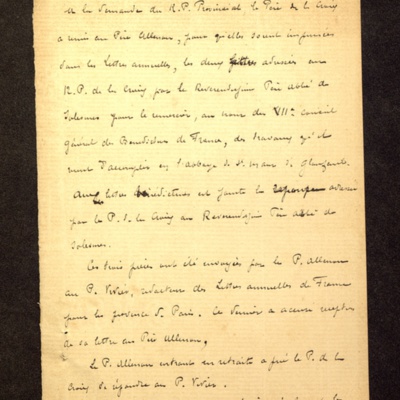 A la demande du R.P. Provincial le Père de la Croix
a remis au Père Allemon, pour qu'elles soient imprimées
dans les lettres annuelles, les deux lettres adressées au
R.P. de la Croix par le Reverendissime Père abbé de
Solesmes pour le remercier, au nom du VIIe conseil
général des Bénédictins de France, des travaux qu'il
vient d'accomplir en l'abbaye de St. Maur de Glanfeuil.
lettres est jointe la reponse adressée
par le P. de la Croix au Reverendissime Père abbé de
Solesmes.
Ces trois pièces ont été envoyées par le P. Allemon
au P. Vivier, rédacteur des Lettres annuelles de France
pour la province de Paris. Ce dernier a accusé reception
de sa lettre au Père Allemon.
Le P. Allemon entrant en retraite a prié le P. de la
Croix de répondre au P. Vivier.